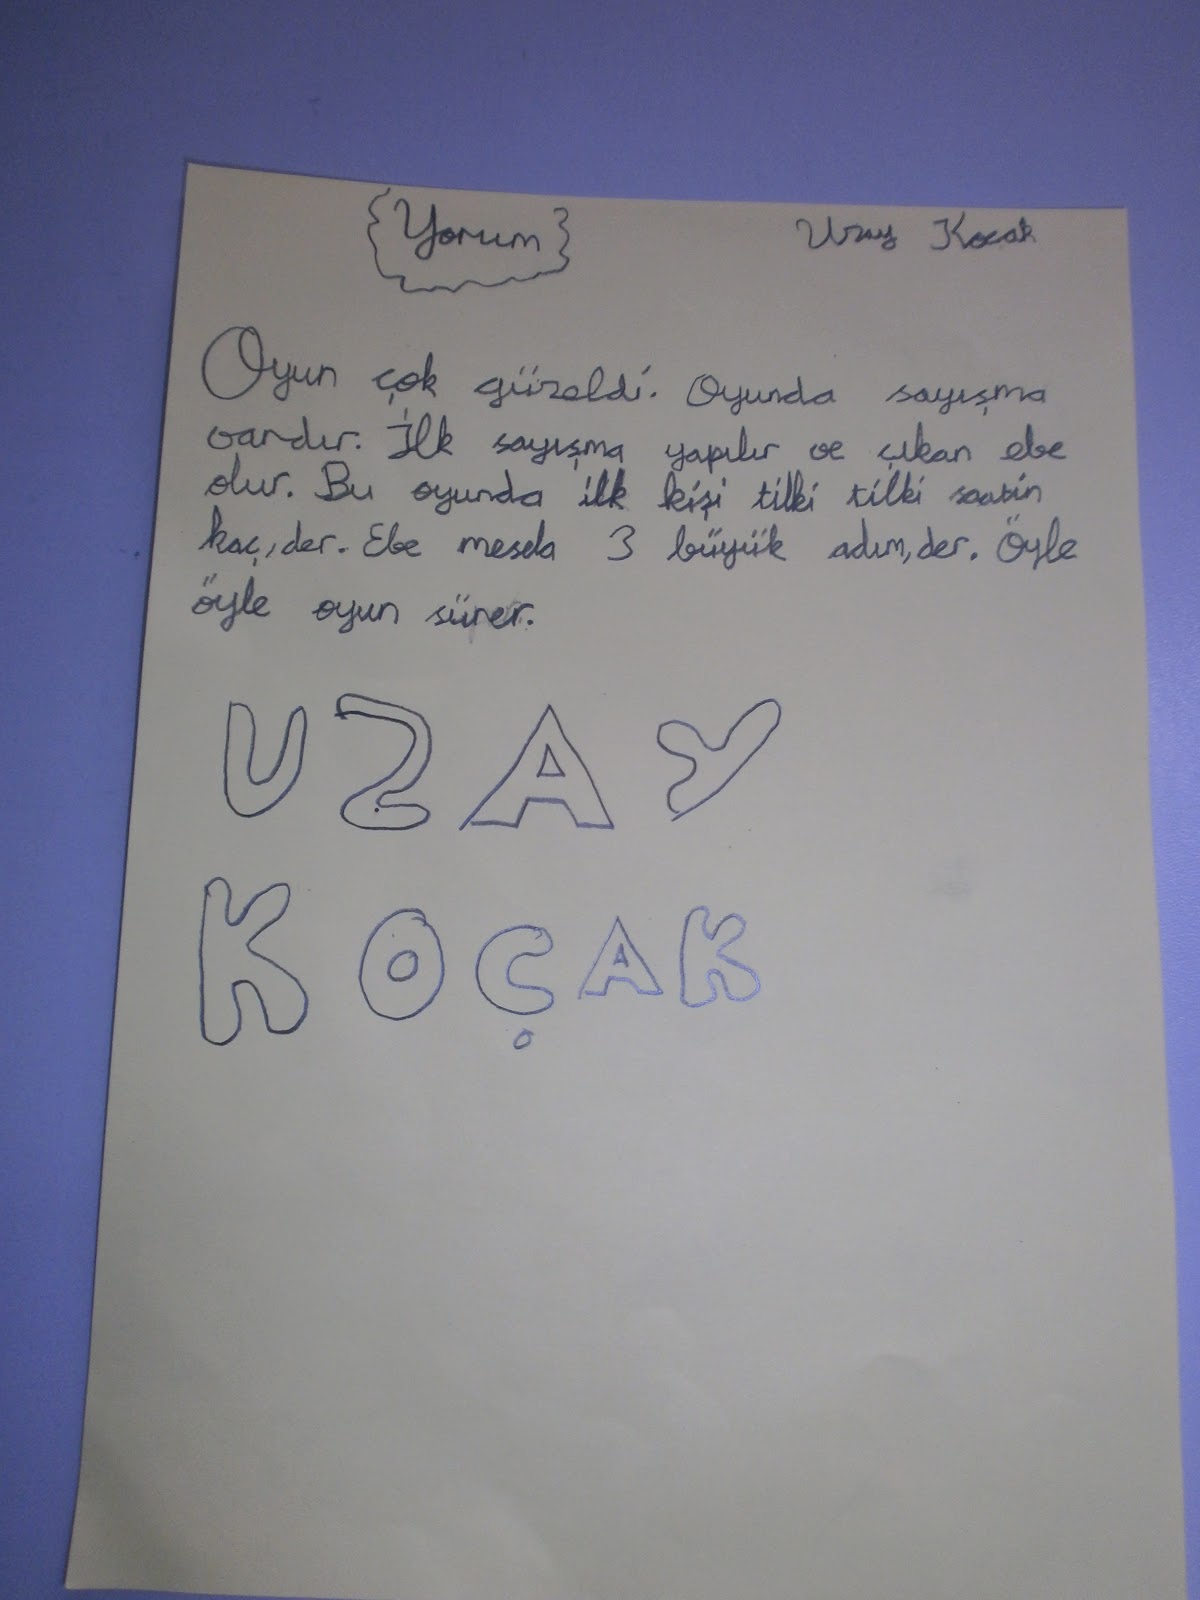 Yorum
Uzay Kocak
Oyun çok güzeldi. Oyunda sayışma
vardır. İlk sayışma yapılır ve çıkan ebe
olur. Bu oyunda ilk kişi tilki tilki saatin
kaç, der. Ebe mesela 3 büyük adım, der. Öyle
öyle oyun sürer.
UZAY
KOÇAK